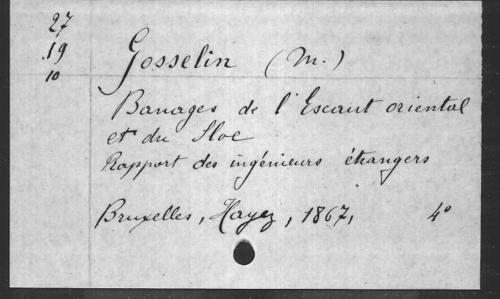 27
19
10
Gosselin (M.)
Barrages de l'Escaut oriental
et du Sloe
Rapport des ingénieurs étrangers
Bruxelles, Hayez, 1867, 4°